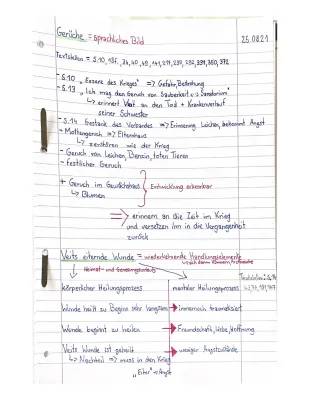 Gerüche = sprachliches Bild
25.08.21
Textstellen = S.10, 13f., 34, 40, 49, 141, 217, 239, 252, 339, 350, 372
- S.10 „Essenz des Krieges" => Gefahr, Bedrohung
- S.13 „Ich mag den Geruch von Sauberkeit Sanatorium"
↳ erinnert Veit an den Tod + Krankenverlauf
seiner Schwester
- S.14 Gestank des Verbandes => Erinnerung Leichen, bekommt Angst
- Mottengeruch => Elternhaus
↳ zerstören wie der Krieg
- Geruch von Leichen, Benzin, toten Tieren
- festlicher Geruch
+ Geruch im Gewächshaus } Entwicklung erkennbar
↳ Blumen
=> erinnern an die Zeit im Krieg
und versetzen ihn in die Vergangenheit
zurück
Veits eiternde Wunde = wiederkehrende Handlungselemente
Heimat- und Genesungsurlaub
Textstellen: S.
körperlicher Heilungsprozess
mentaler Heilungsprozess
Wunde heilt zu Beginn sehr langsam → immernoch traumatisiert
Wunde beginnt zu heilen → Freundschaft, Liebe, Hoffnung
Veits Wunde ist geheilt → weniger Angstzustände
↳ Nachteil => muss in den Krieg
„Eiter" = Angst